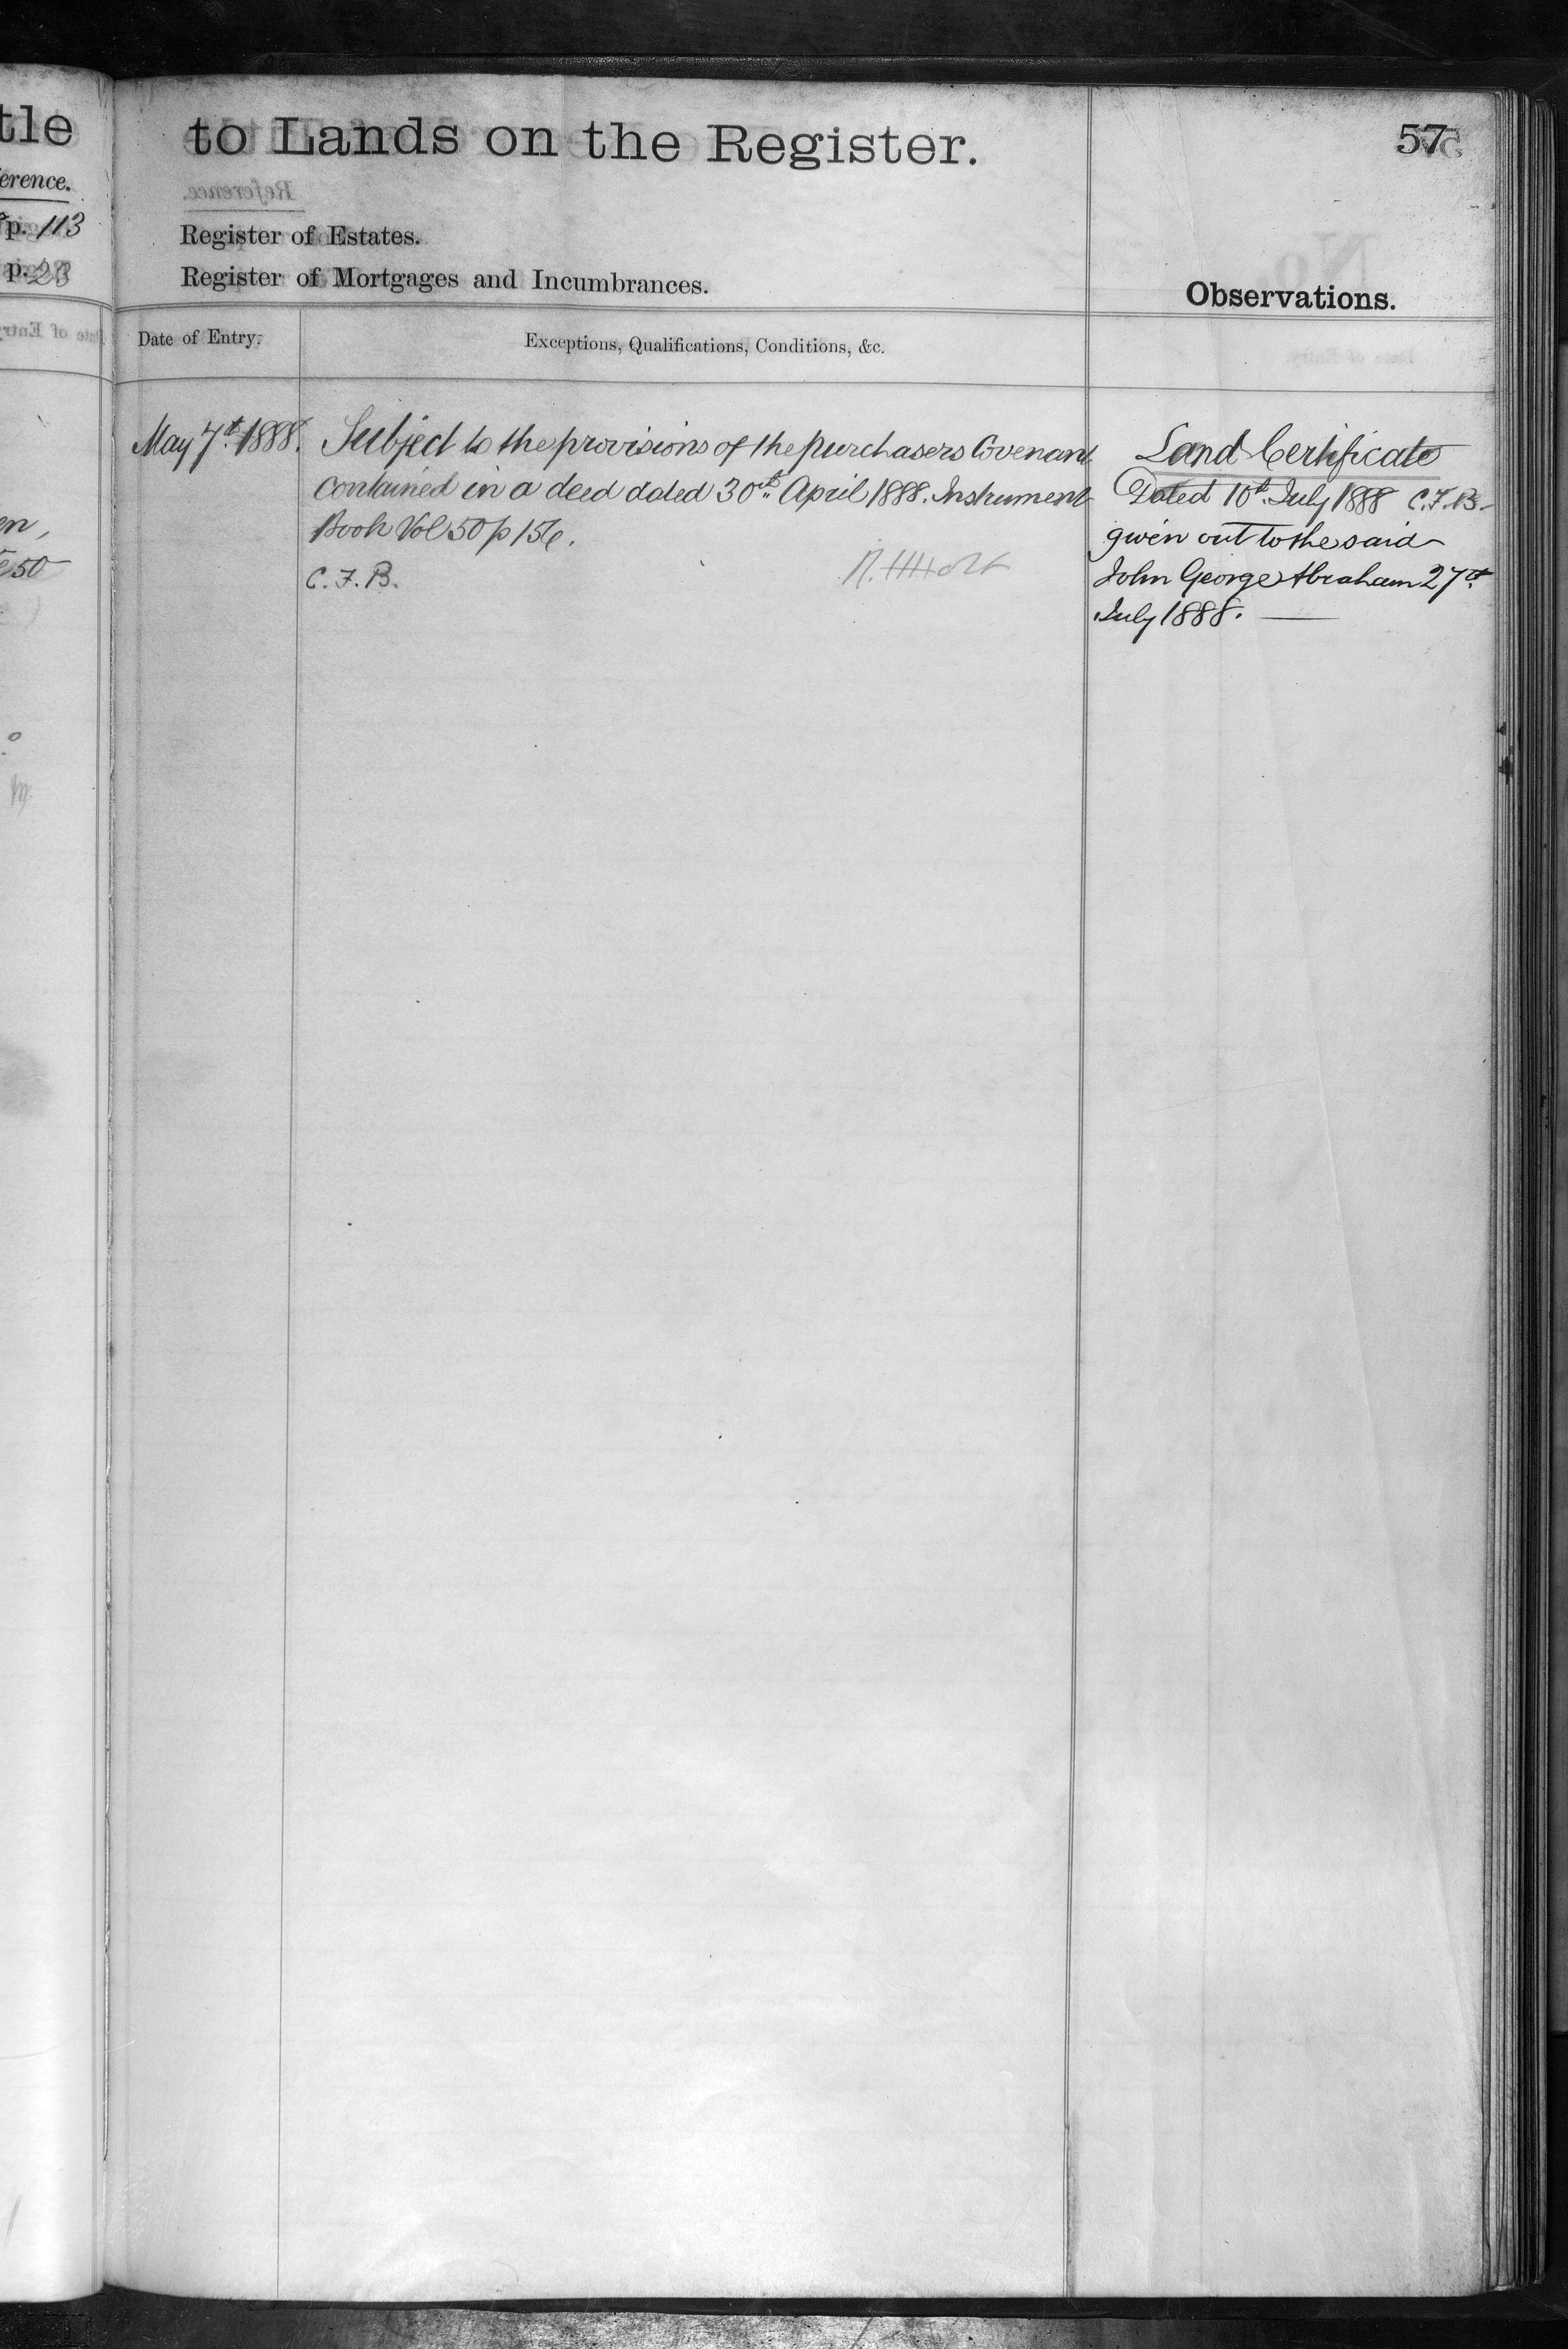 tle
erence.
p. 113
p. 23
en,
50
to Lands on the Register.
57
Register of Estates.
Register of Mortgages and Incumbrances.
Observations.
Date of Entry.
Exceptions, Qualifications, Conditions, &c.
May 7th 1888.
Subject to the provisions of the purchasers Covenant
contained in a deed dated 30th April 1888. Instrument
Book Vol 50 p 156.
C. F. B.
R. H Holt
Land Certificate
Dated 10th July 1888 C. F. B.
given out to the said
John George Abraham 27th
July 1888.